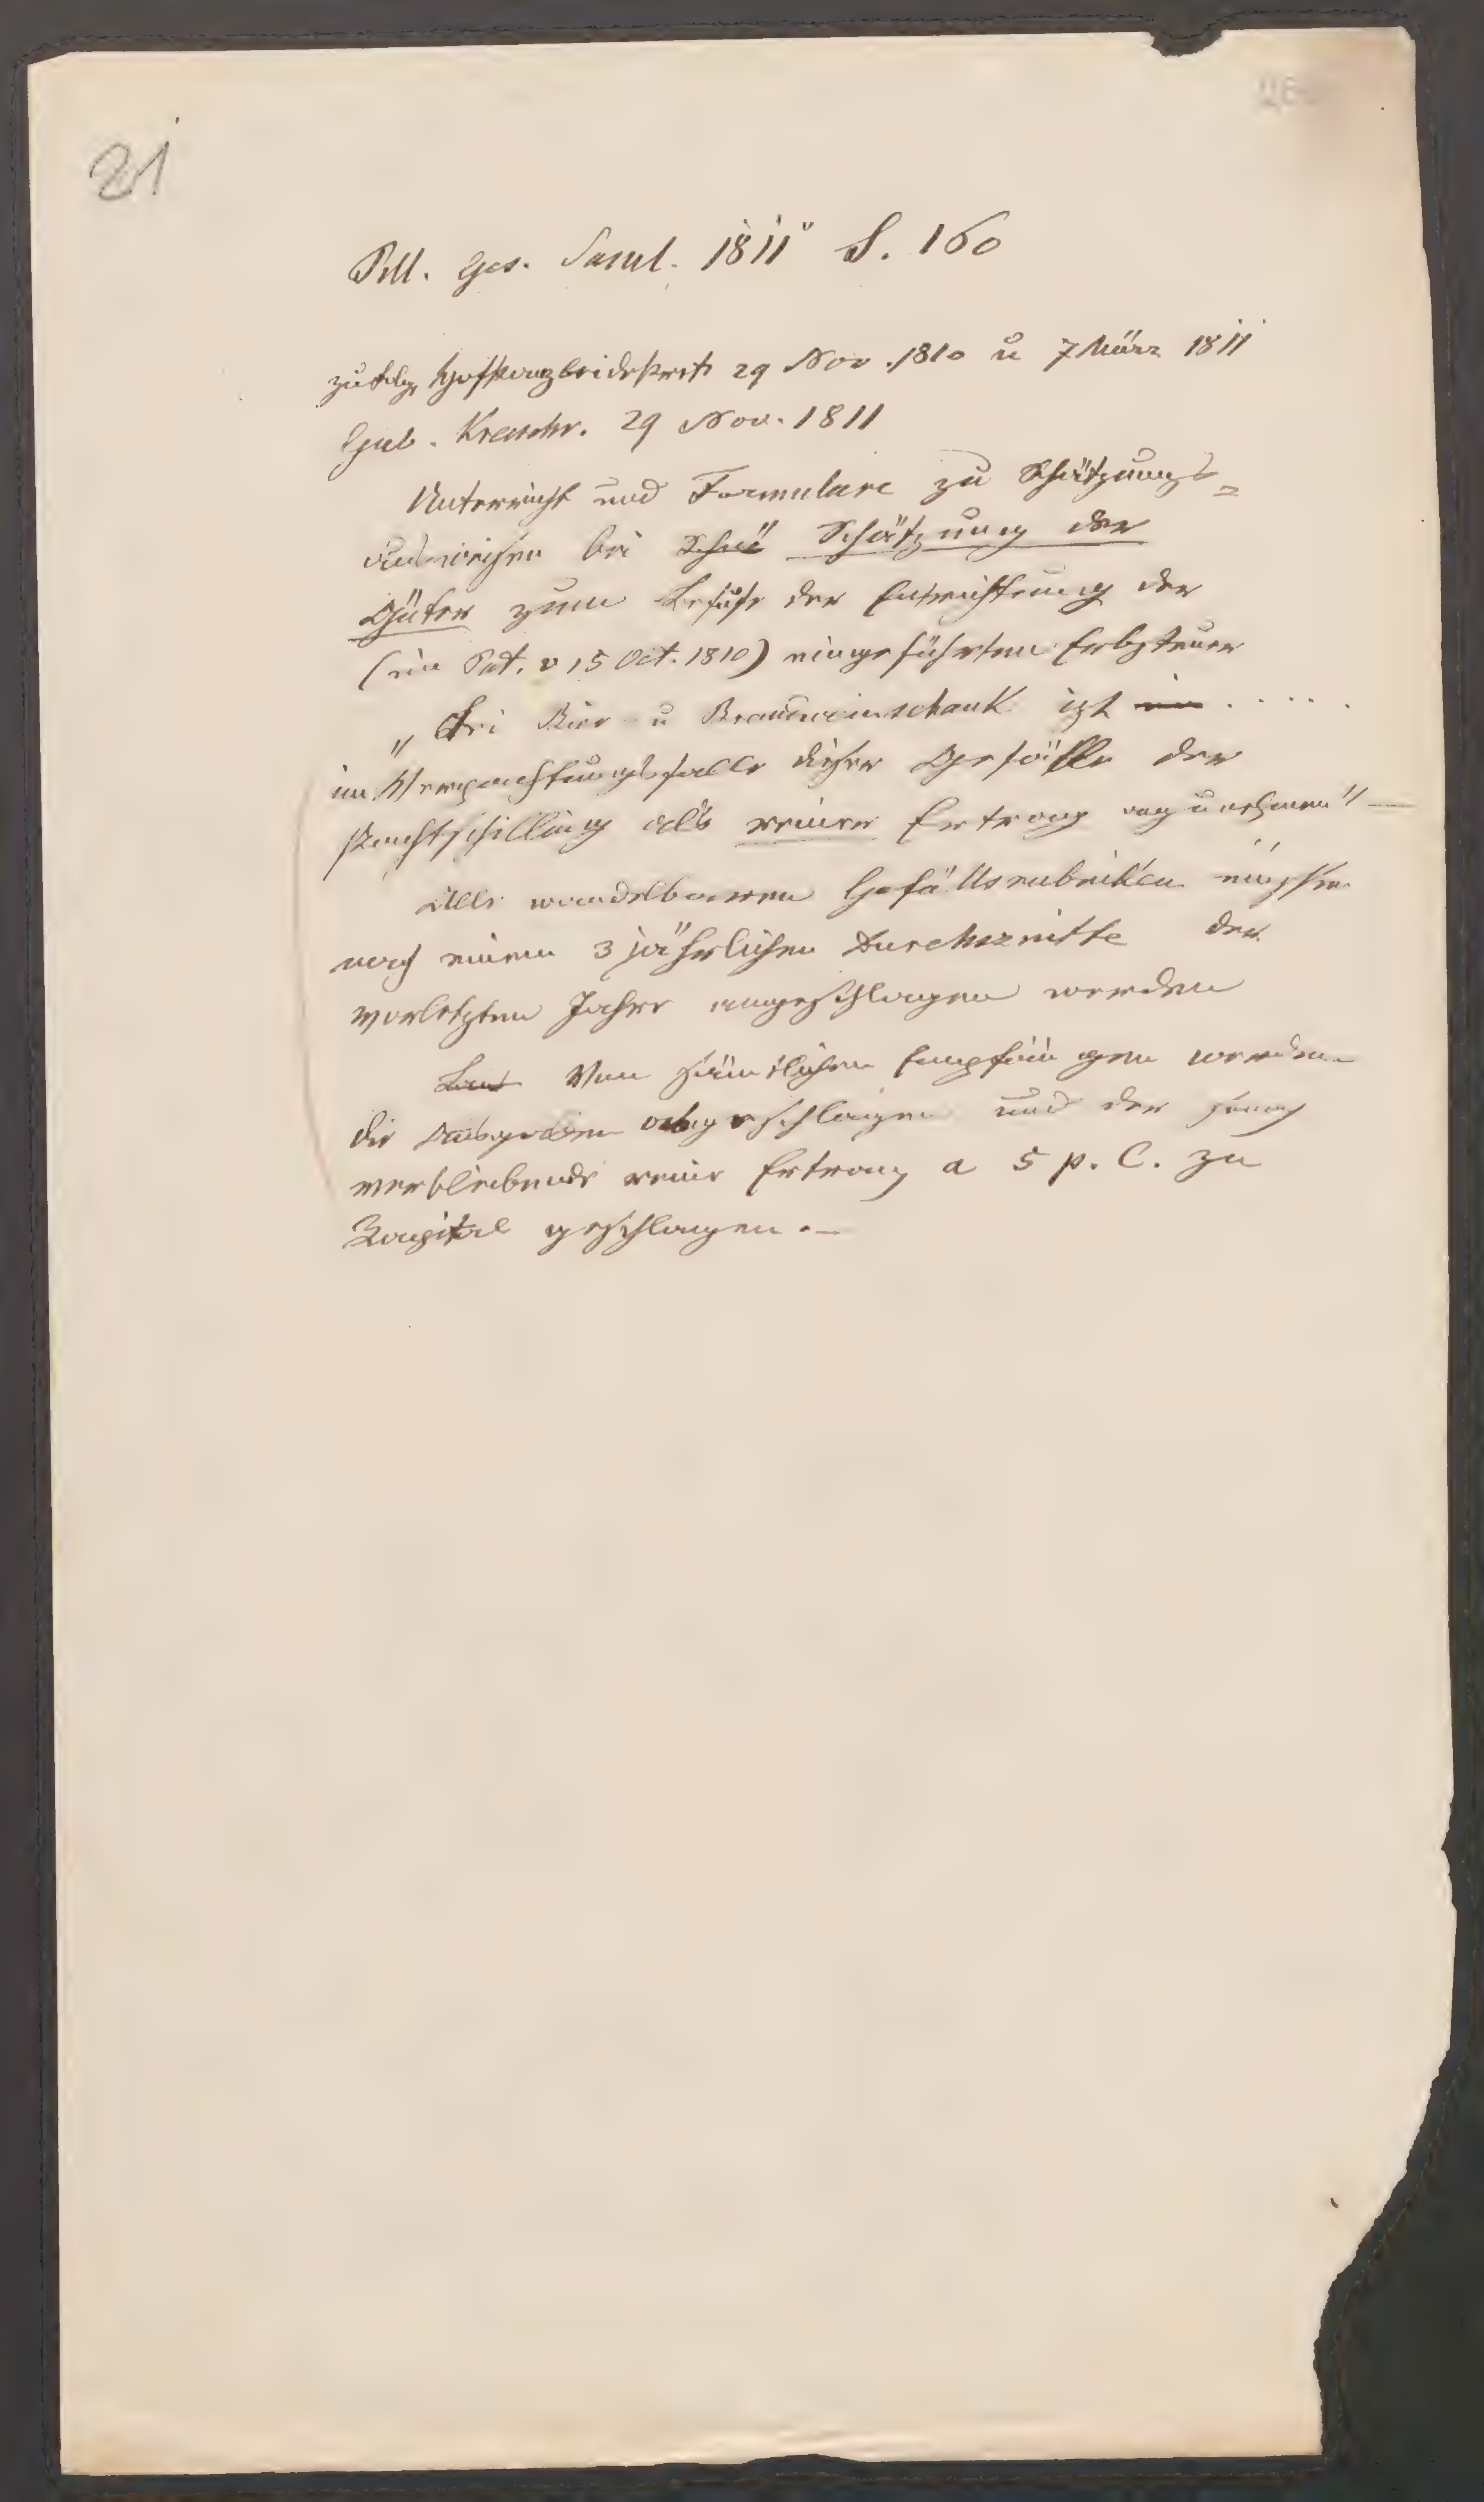 21
Pill. Ges. Saml. 1811 S. 160
zufolge Hofkanzleidekrets 29 Nov. 1810 u 7 März 1811
Gub. Kreisschr. 29 Nov. 1811
Unterricht und Formulare zu Schätzungs=
ausweisen bei Schä Schätzung der
Güter zum Behufe der Entrichtung der
(im Pat. v 15 Oct. 1810) eingeführten Erbsteuer
„Bei Bier u Brandweinschank ist ein .....
im Verpachtungsfalle dieser Gefälle der
Pachtschilling als reiner Ertrag anzunehmen" —
Alle wandelbaren Gefällsrubriken müssen
nach einem 3 jährlichen Durchsznitte der
vorletzten Jahre angeschlagen werden
Von sämtlichen Empfängen werden
die Ausgaben abgeschlagen und der sonach
verbleibende reine Ertrag a 5 p. C. zu
Kapital geschlagen. —